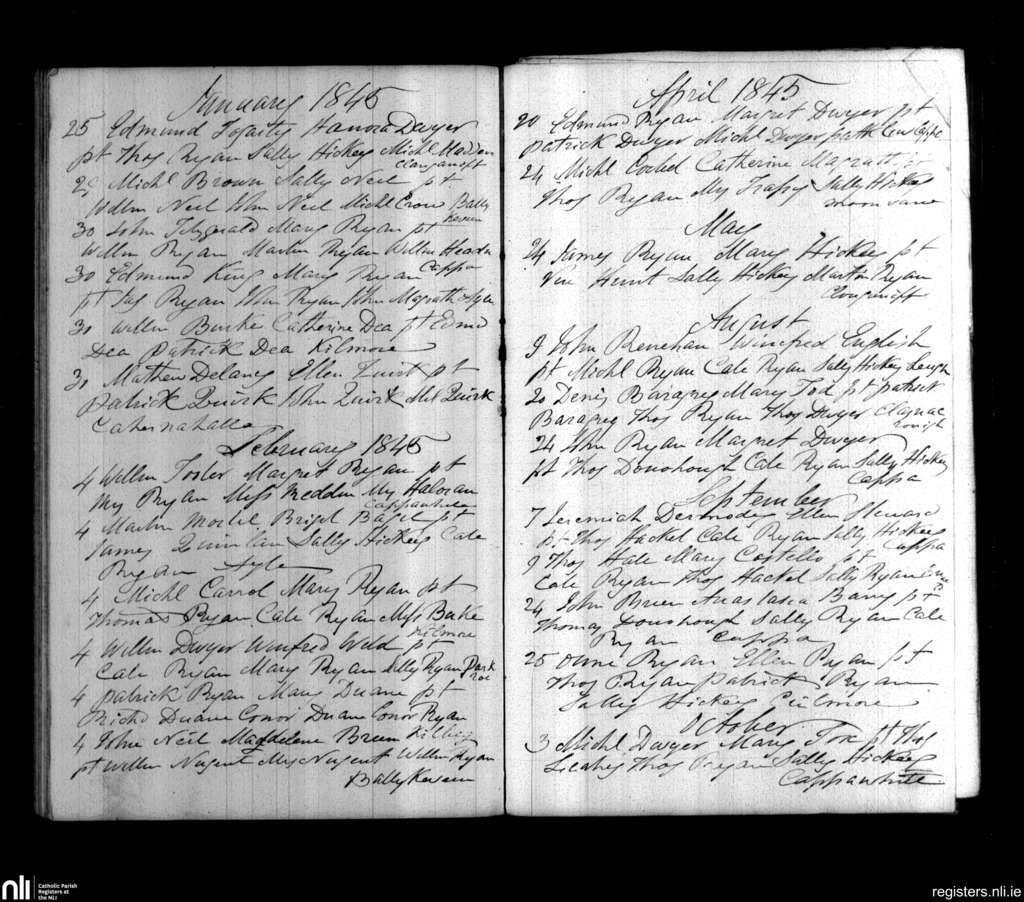 January 1845
25 Edmund Fogarty Hanora Dwyer
pt Thos Ryan Sally Hickey Michl
Clonganuff
Michl Brown Sally Neil pt
Willm Neil John Neil Michl Crowe Bally
30 John Fitzgerald Mary Ryan pt
Willm Ryan Martin Ryan Willm
Cappa
30 Edmund King Mary Ryan
pt Jas Ryan John Ryan John Magrath
30 Willm Burke Catherine Dea pt Edmd
Dea Patrick Dea Kilmore
30 Mathew Delaney Ellen Quirk pt
Patrick Quirk John Quirk Quirk
Cahernahalla
February 1845
4 Willm Foster Margret Ryan pt
My Ryan Miss Meddin My Haloran
Cappawhite
4 Martin Bridget pt
James Quinlan Sally Hickey Cate
Ryan
4 Michl Carrol Mary Ryan pt
Thomas Ryan Cate Ryan Miss Burke
Kilmore
4 Willm Dwyer Winfred pt
Cate Ryan Mary Ryan Sally Ryan Park
4 Patrick Ryan Mary Duane pt
Richd Duane Conor Duane Conor Ryan
4 John Neil Magdelene Breen
pt Willm Nugent Miss Nugent Willm Ryan
Ballykeveen
April 1845
20 Edmund Ryan Margret Dwyer pt
Patrick Dwyer Michl Dwyer
24 Michl Catherine Magrath pt
Thos Ryan My Sally Hickey
May
24 James Ryan Mary Hickey pt
Hunt Sally Hickey Martin Ryan
Clonganuff
August
9 John Renehan Winefred English
pt Michl Ryan Cate Ryan Sally Hickey
20 Denis Baragrey Mary pt Patrick
Baragrey Thos Ryan Thos Dwyer
24 John Ryan Margret Dwyer
pt Thos Donohough Cate Ryan Sally Hickey
Cappa
September
7 Jeremiah Dermody Ellen
pt Thos Hackel Cate Ryan Sally Hickey
Cappa
9 Thos Hale Mary Costello pt
Cate Ryan Thos Hackel Sally Ryan
24 John Brien Anastasia Barry pt
Thomas Donohough Sally Ryan Cate
Ryan Cappa
25 Ryan Ellen Ryan pt
Thos Ryan Patrick Ryan
Sally Hickey Kilmore
October
3 Michl Dwyer Mary Fox pt Thos
Leahey Thos Ryan Sally Hickey
Cappawhite
nli
Catholic Parish
Registers at
the NLI
registers.nli.ie